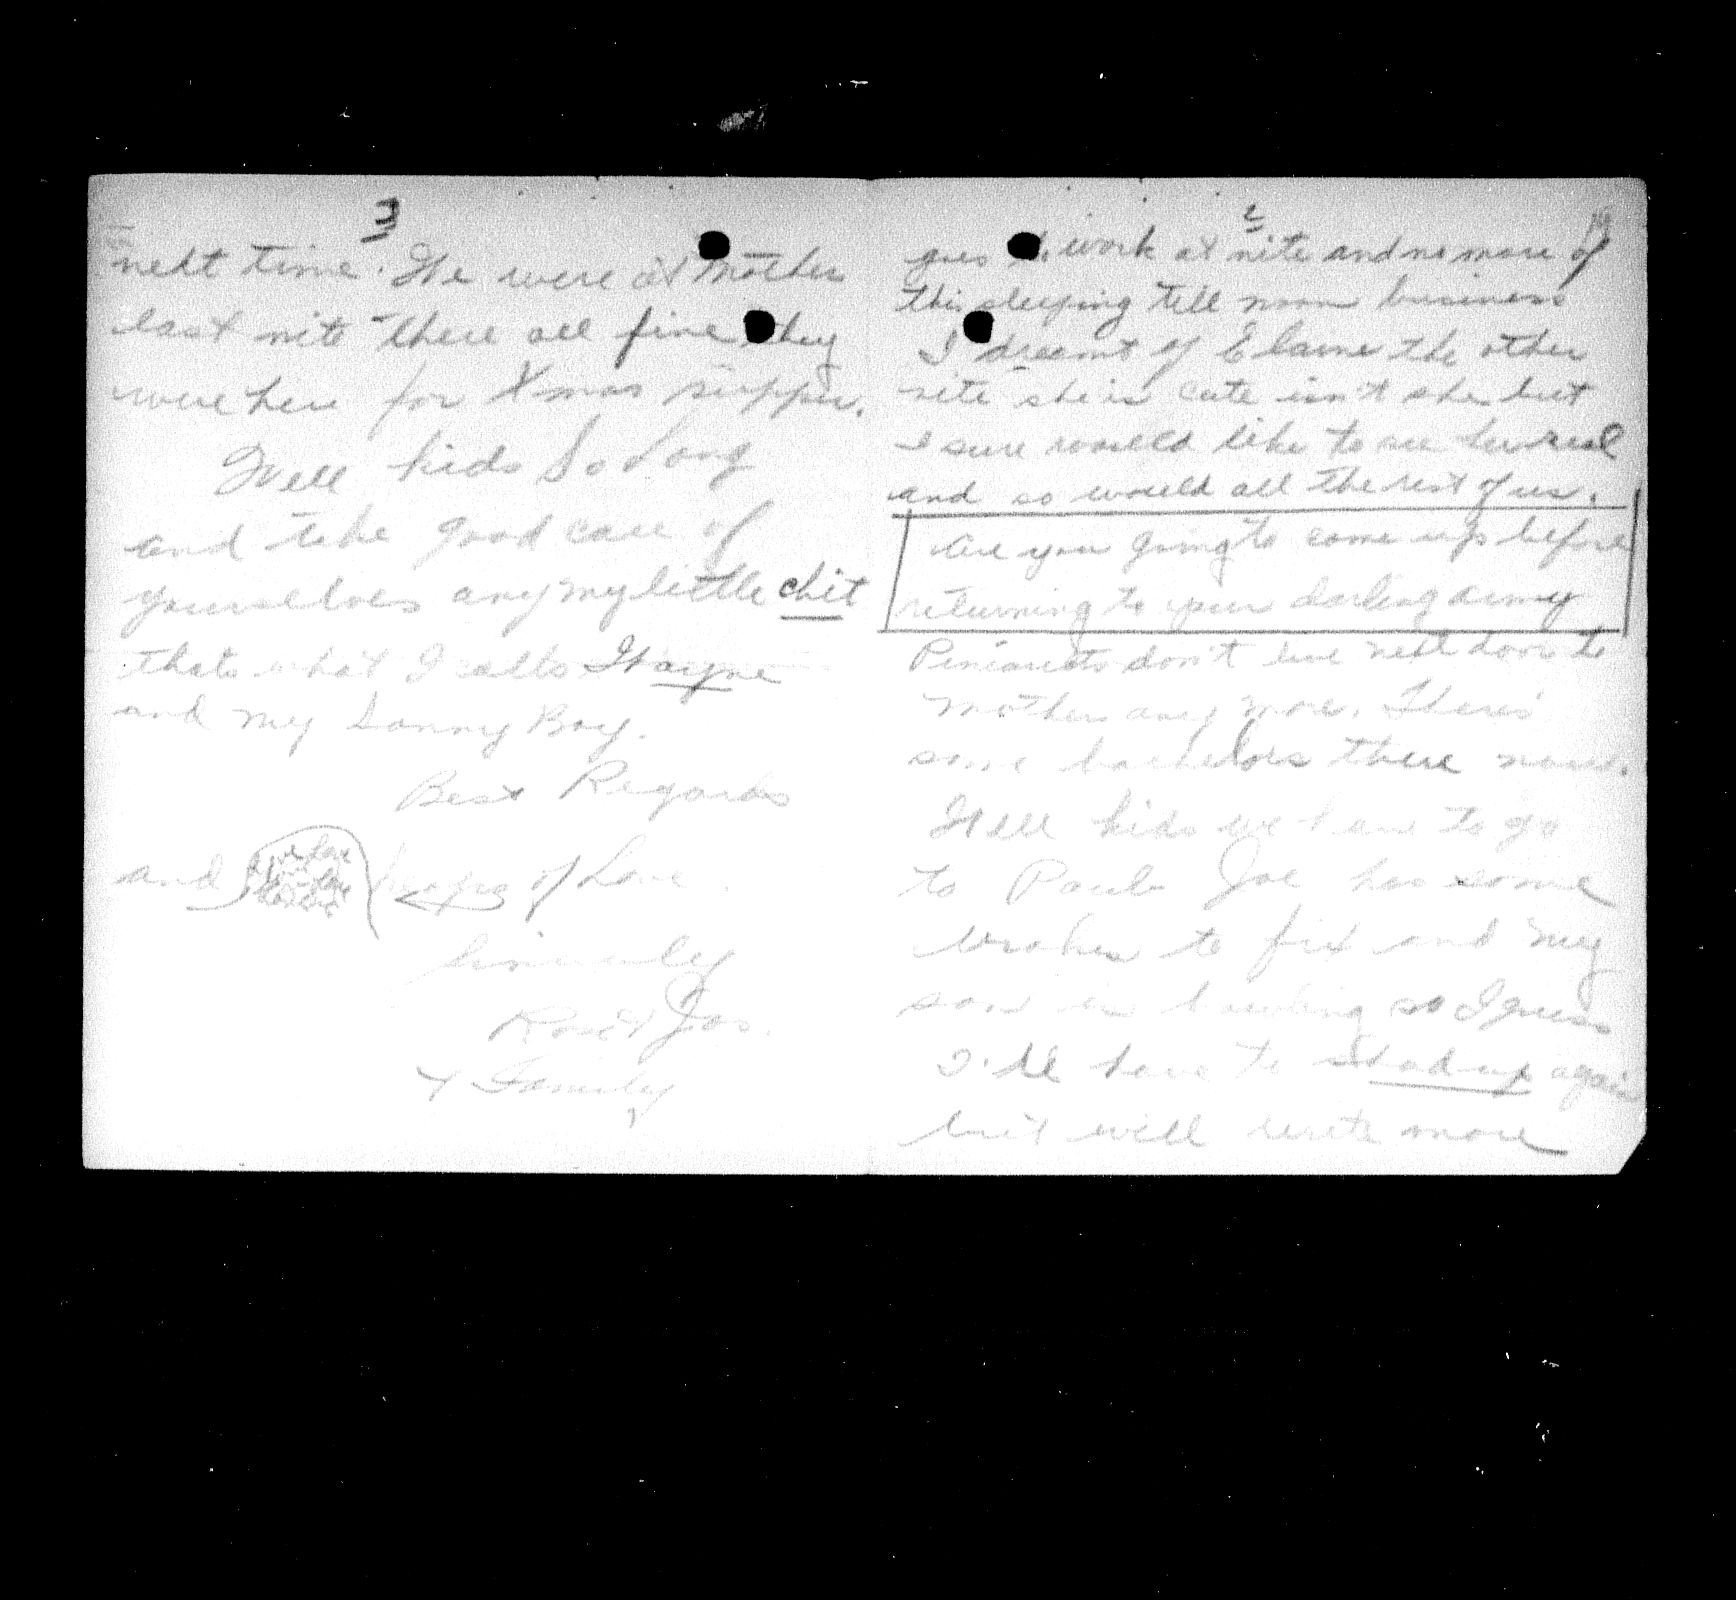 2
goes to work at nite and no more of
this sleeping till noon business
I dreamt of Elaine the other
nite she is cute isn't she but
I sure would like to see her real
and so would all the rest of us.
Are you going to come up before
returning to your darling army
don't live next door to
mother any more. Theres
some bachelors there now.
Well kids we have to go
to Pauls Joe has some
to fix and my
son is howling so I guess
I'll have to shad up again
but will write more
3
next time. We were at Mother
last nite there all fine they
were here for Xmas supper.
Well kids So Long
and take good care of
yourselves any my little chit
thats what I calls Wayne
and my Sonny Boy.
Best Regards
and heaps of Love
Sincerely
Jos.
& Family